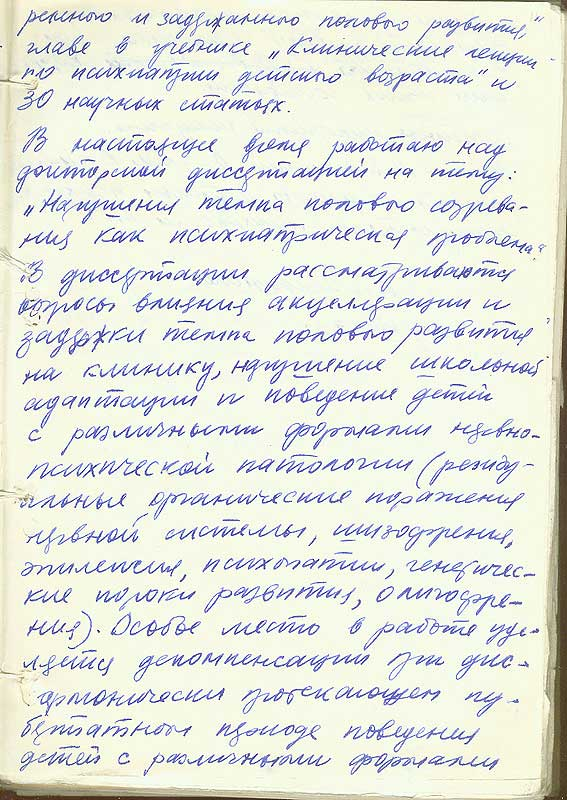 ренного и задержанного полового развития,"
главе в учебнике „Клинические лекции
по психиатрии детского возраста" и
30 научных статьях.
В настоящее время работаю над
докторской диссертацией на тему:
„Нарушения темпа полового созрева-
ния как психиатрическая проблема."
В диссертации рассматриваются
вопросы влияния акцелерации и
задержки темпа полового развития
на клинику, нарушение школьной
адаптации и поведение детей
с различными формами нервно-
психической патологии (резиду-
альные органические поражения
нервной системы, шизофрения,
эпилепсия, психопатии, генетичес-
кие пороки развития, олигофре-
ния). Особое место в работе уде-
ляется декомпенсации при дис-
гармонически протекающем пу-
бертатном периоде поведения
детей с различными формами